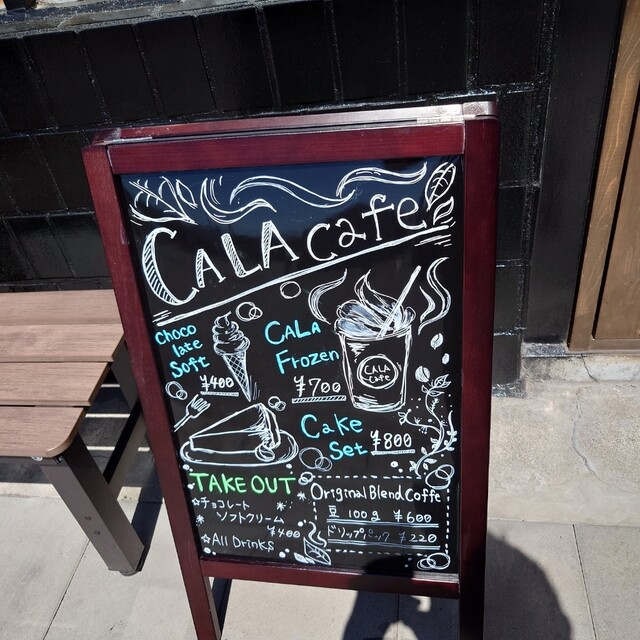 CALA Cafe
Choco
late
Soft
¥400
CALA
Frozen
¥700
CALA
Cafe
Cake
Set
¥800
TAKE OUT
☆チョコレート
ソフトクリーム
¥400
☆All Drinks
Original Blend Coffe
豆 100g ¥600
ドリップパック ¥220